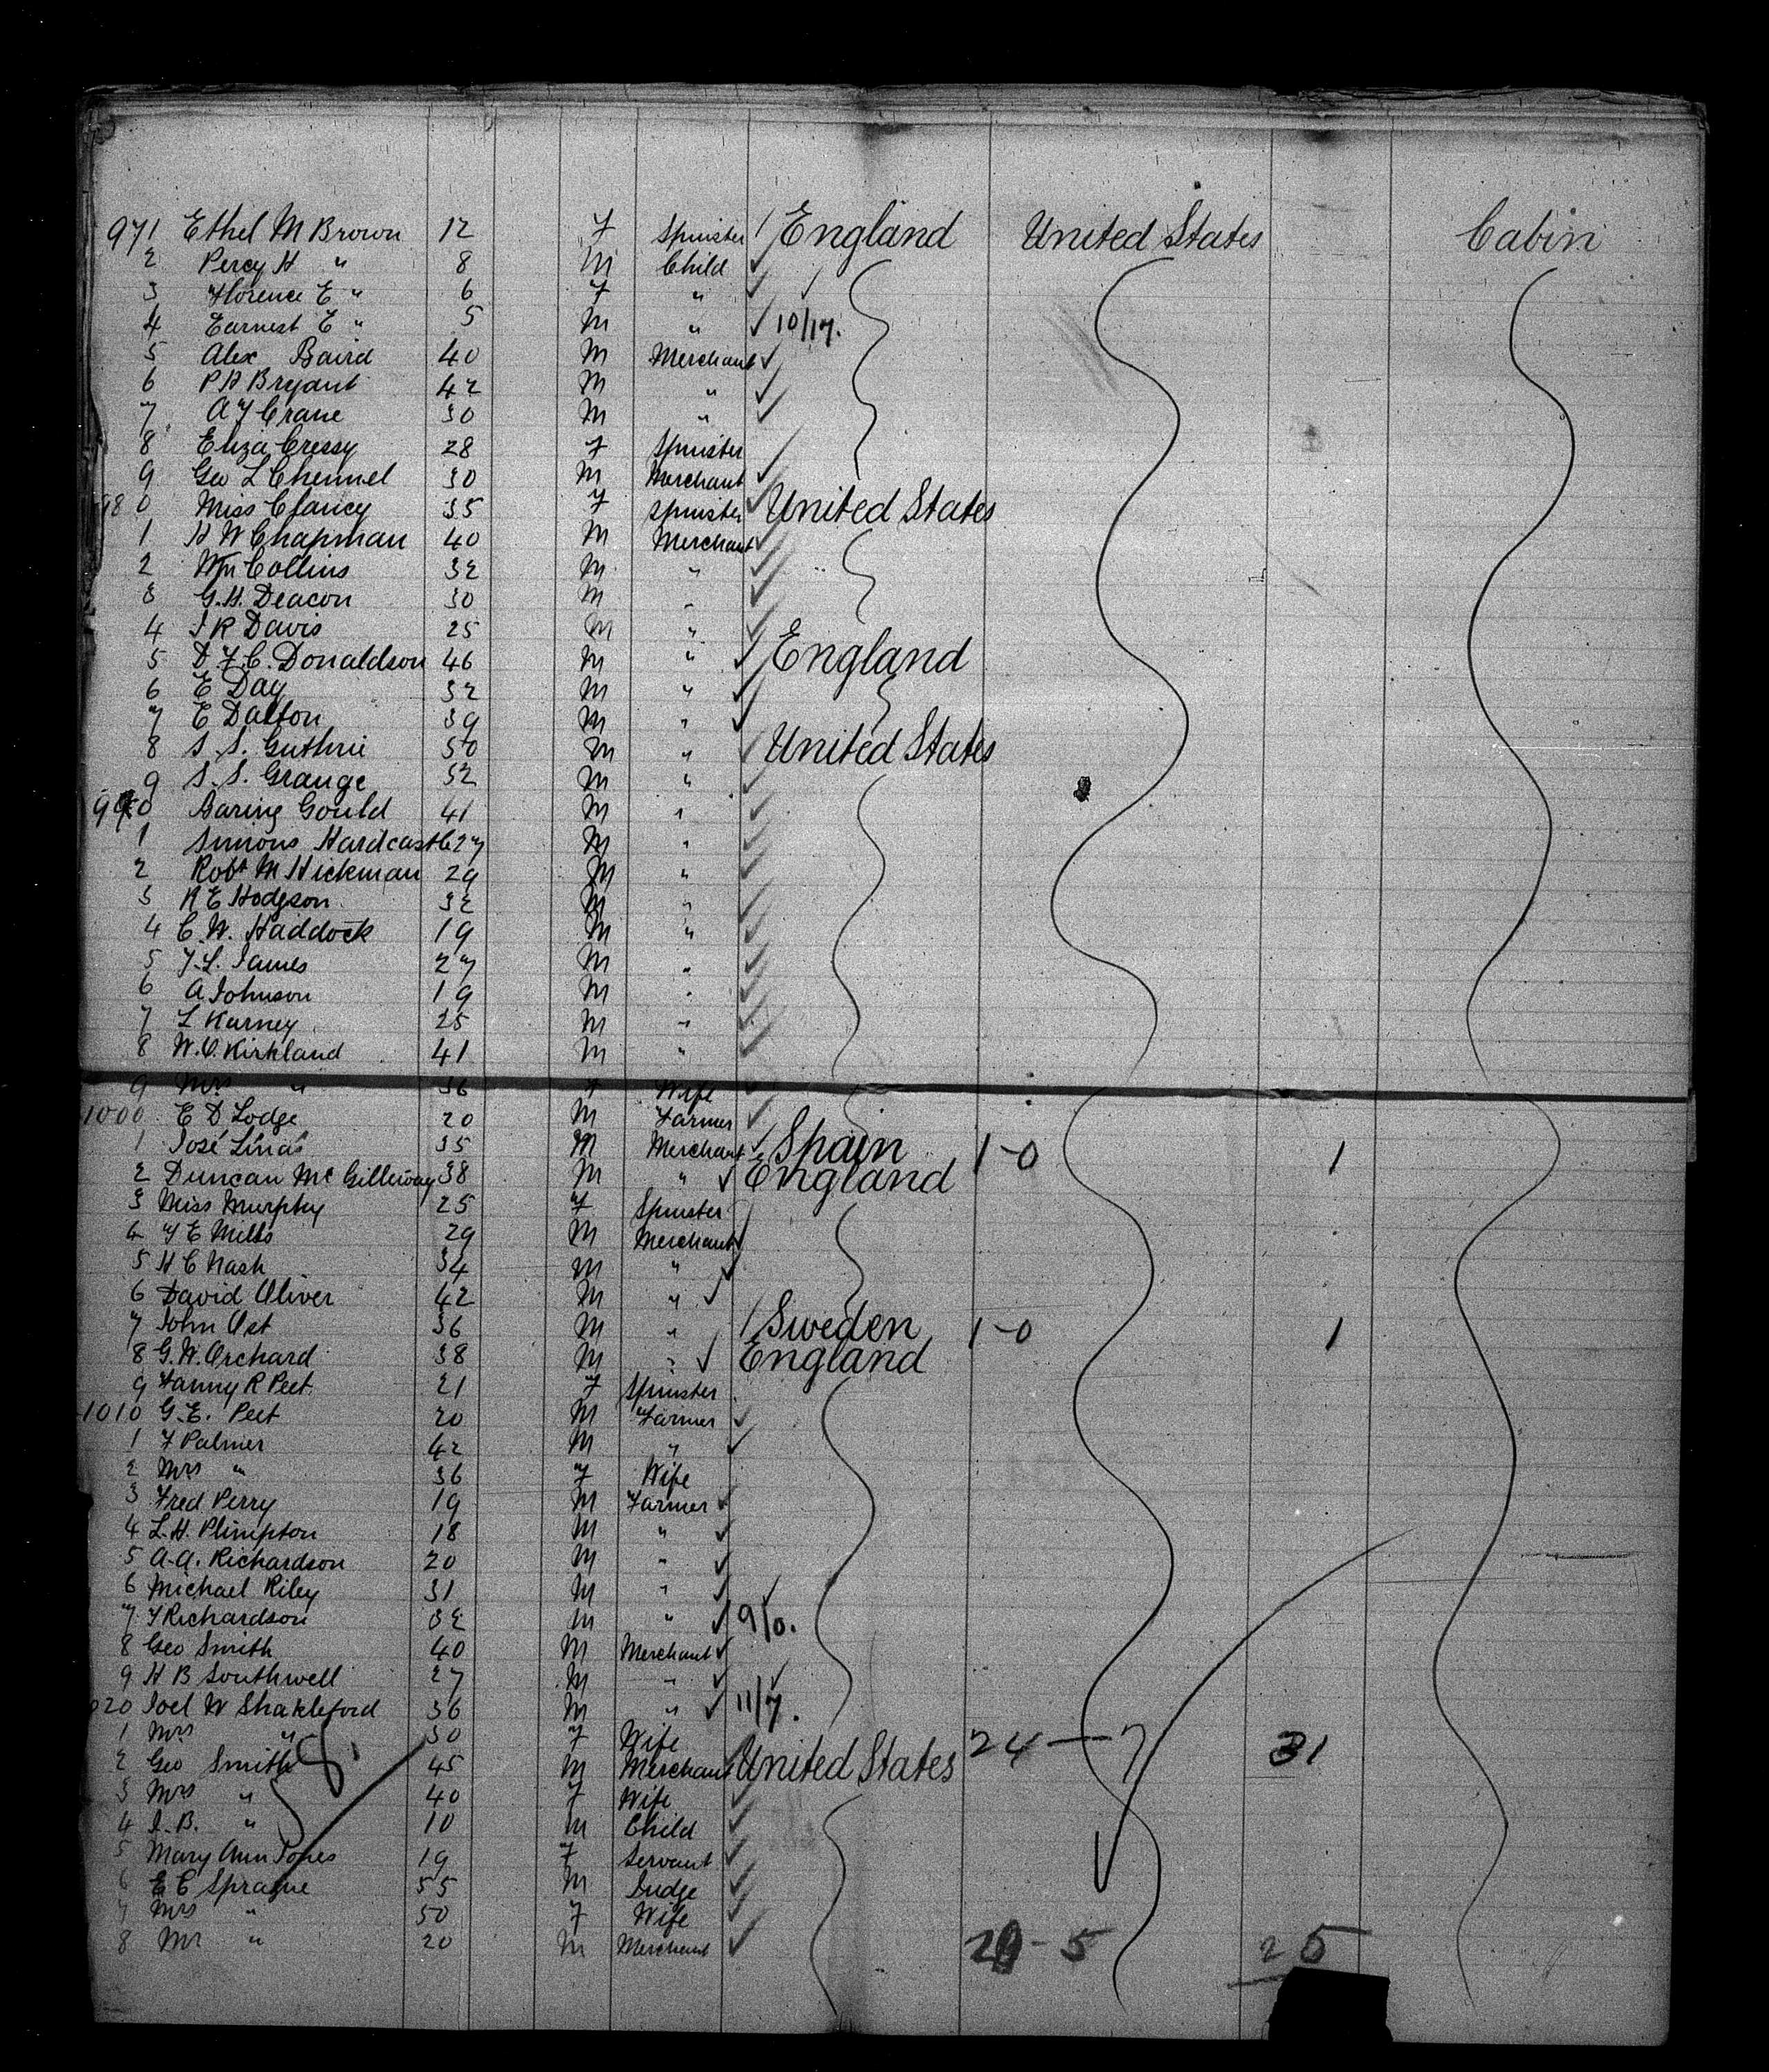 971 Ethel M Brown 12 F Spinster England United States Cabin
2 Percy H " 8 M Child
3 Florence E " 6 F "
4 Earnest E " 5 M " 10/17.
5 Alex Baird 40 M Merchant
6 P H Bryant 42 M "
7 A F Crane 30 M "
8 Eliza Cressy 28 F Spinster
9 Geo L Chennel 30 M Merchant
980 Miss Clancy 35 F Spinster United States
1 H W Chapman 40 M Merchant
2 Wm Collins 32 M "
3 G.H. Deacon 30 M "
4 J R Davis 25 M "
5 D F.C. Donaldson 46 M " England
6 E Day 32 M "
7 E Dalton 39 M "
8 S. S. Guthrie 50 M " United States
9 S. S. Grange 52 M "
990 Baring Gould 41 M "
1 Simons Hardcastle 27 M "
2 Robt M Hickman 29 M "
3 R E Hodgson 32 M "
4 C. W. Haddock 19 M "
5 F. L. James 27 M "
6 A Johnson 19 M "
7 L Karney 25 M "
8 W. O. Kirkland 41 M "
9 Mrs " 36 F Wife
1000 E D Lodge 20 M Farmer
1 José Linás 35 M Merchant Spain 1-0 1
2 Duncan Mc Gilleway 38 M " England
3 Miss Murphy 25 F Spinster
4 F E Mills 29 M Merchant
5 H C Nash 34 M "
6 David Oliver 42 M "
7 John Ost 36 M " Sweden 1-0 1
8 G. W. Orchard 38 M " England
9 Fanny R Peet 21 F Spinster
1010 G. E. Peet 20 M Farmer
1 F Palmer 42 M "
2 Mrs " 36 F Wife
3 Fred Perry 19 M Farmer
4 L. H. Plimpton 18 M "
5 A. A. Richardson 20 M "
6 Michael Riley 31 M "
7 F Richardson 32 M " 9/0.
8 Geo Smith 40 M Merchant
9 H B Southwell 27 M "
020 Joel W Shakleford 36 M " 11/7.
1 Mrs " 30 F Wife 24-7 31
2 Geo Smith 45 M Merchant United States
3 Mrs " 40 F Wife
4 J. B. " 10 M Child
5 Mary Ann Jones 19 F Servant
6 E C Sprague 55 M Judge
7 Mrs " 50 F Wife
8 Mr " 20 M Merchant 20-5 25